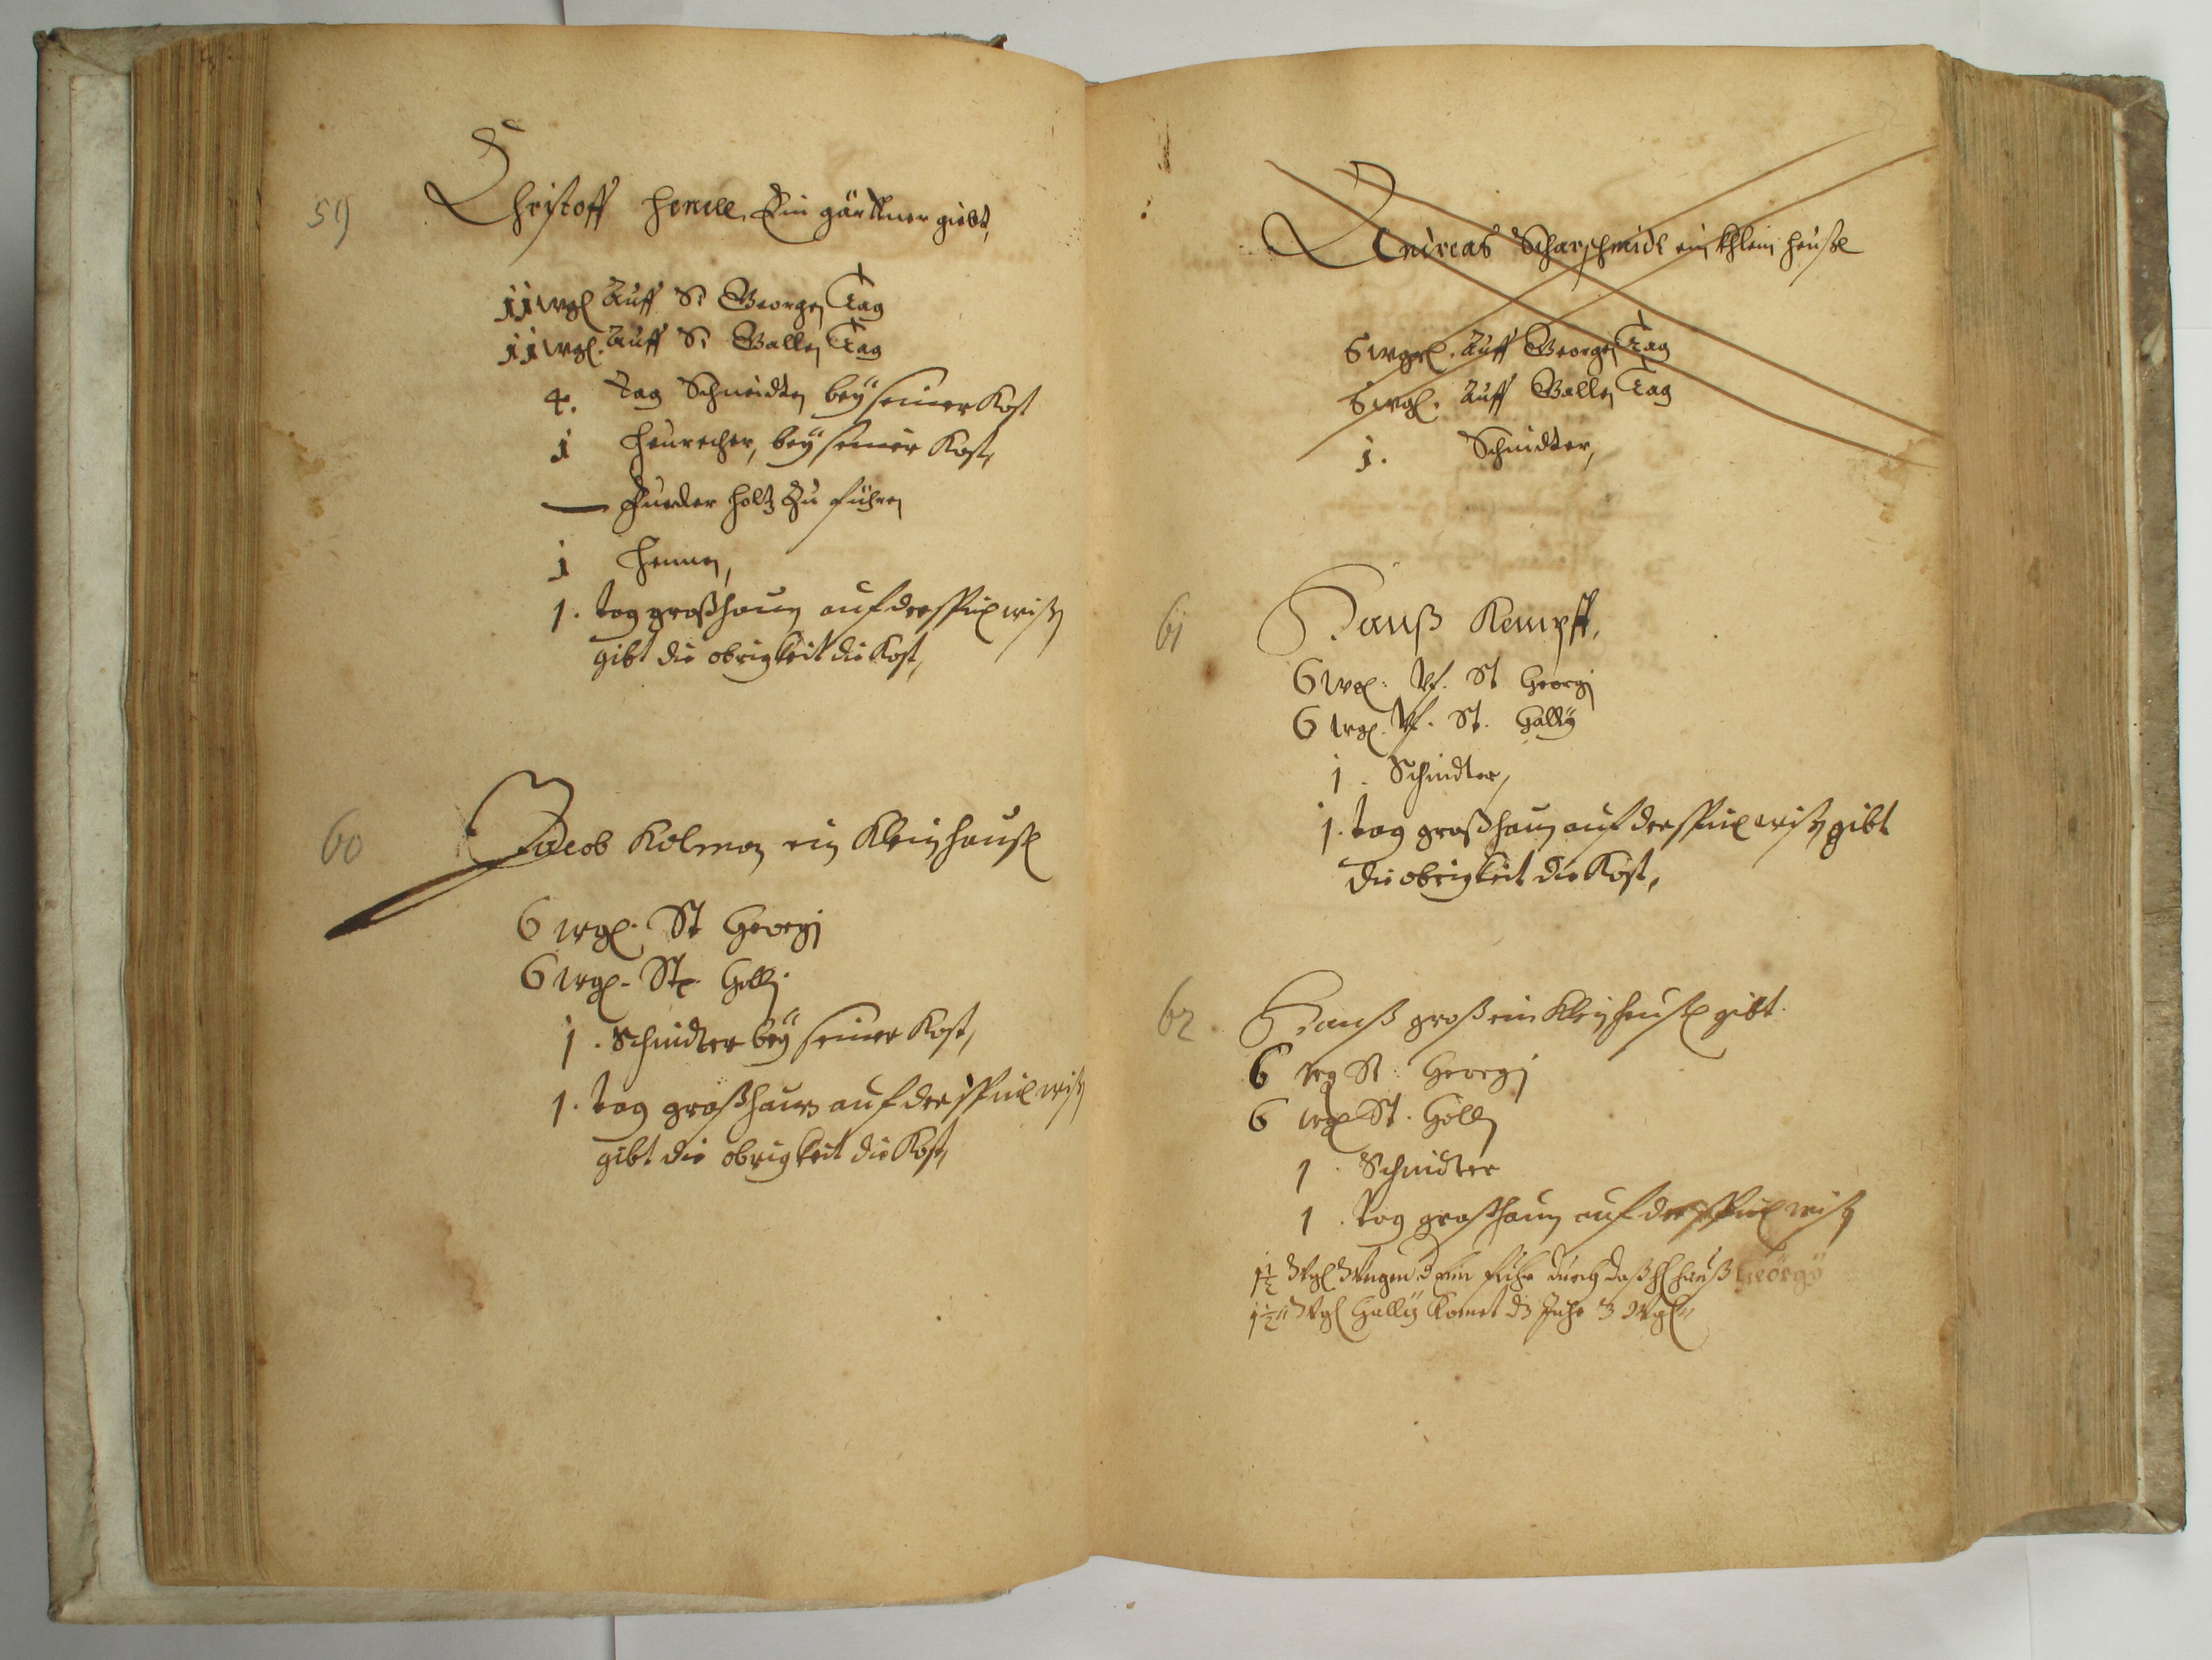 59
Christoff Henell, Ein gärttner giebt,
11 wgl Auff S: Georgen Tag
11 wgl. Auff S: Gallen Tag
4. Tag Schneidten beÿ seiner Kost
1 Heurecher, beÿ seiner Kost,
— Fueder Holtz Zu führen
1 Hennen,
1. tag graßhauen auf der wißen
gibt die obrigkeit die Kost,
60
Jacob Kolman ein Klein heusl
6 wgl. St Georgj
6 wgl. St. Gallj
1. Schnidter beÿ seiner Kost,
1. tag graßhauen auf der wißen
gibt die obrigkeit die Kost,
Andreas Scharschmidt ein Khlein heußl
6 wgl. Auff Georgen Tag
6 wgl. Auff Gallen Tag
1. Schnidter,
61
Hanß Kempff,
6 wgl: Vf. St Georgj
6 wgl. Vf. St. Gallÿ
1. Schnidter,
1. tag graßhauen auf der wißen gibt
die obrigkeit die Kost,
62
Hanß groß ein Klein heusl gibt.
6 wgl St: Georgj
6 wgl St. Gallj
1. Schnidter
1. tag graßhauen auf der wißen
1½ Wgl durch daß hauß Geörgÿ
1½ Wgl Gallÿ Komet dz Jahr 3 Wgl